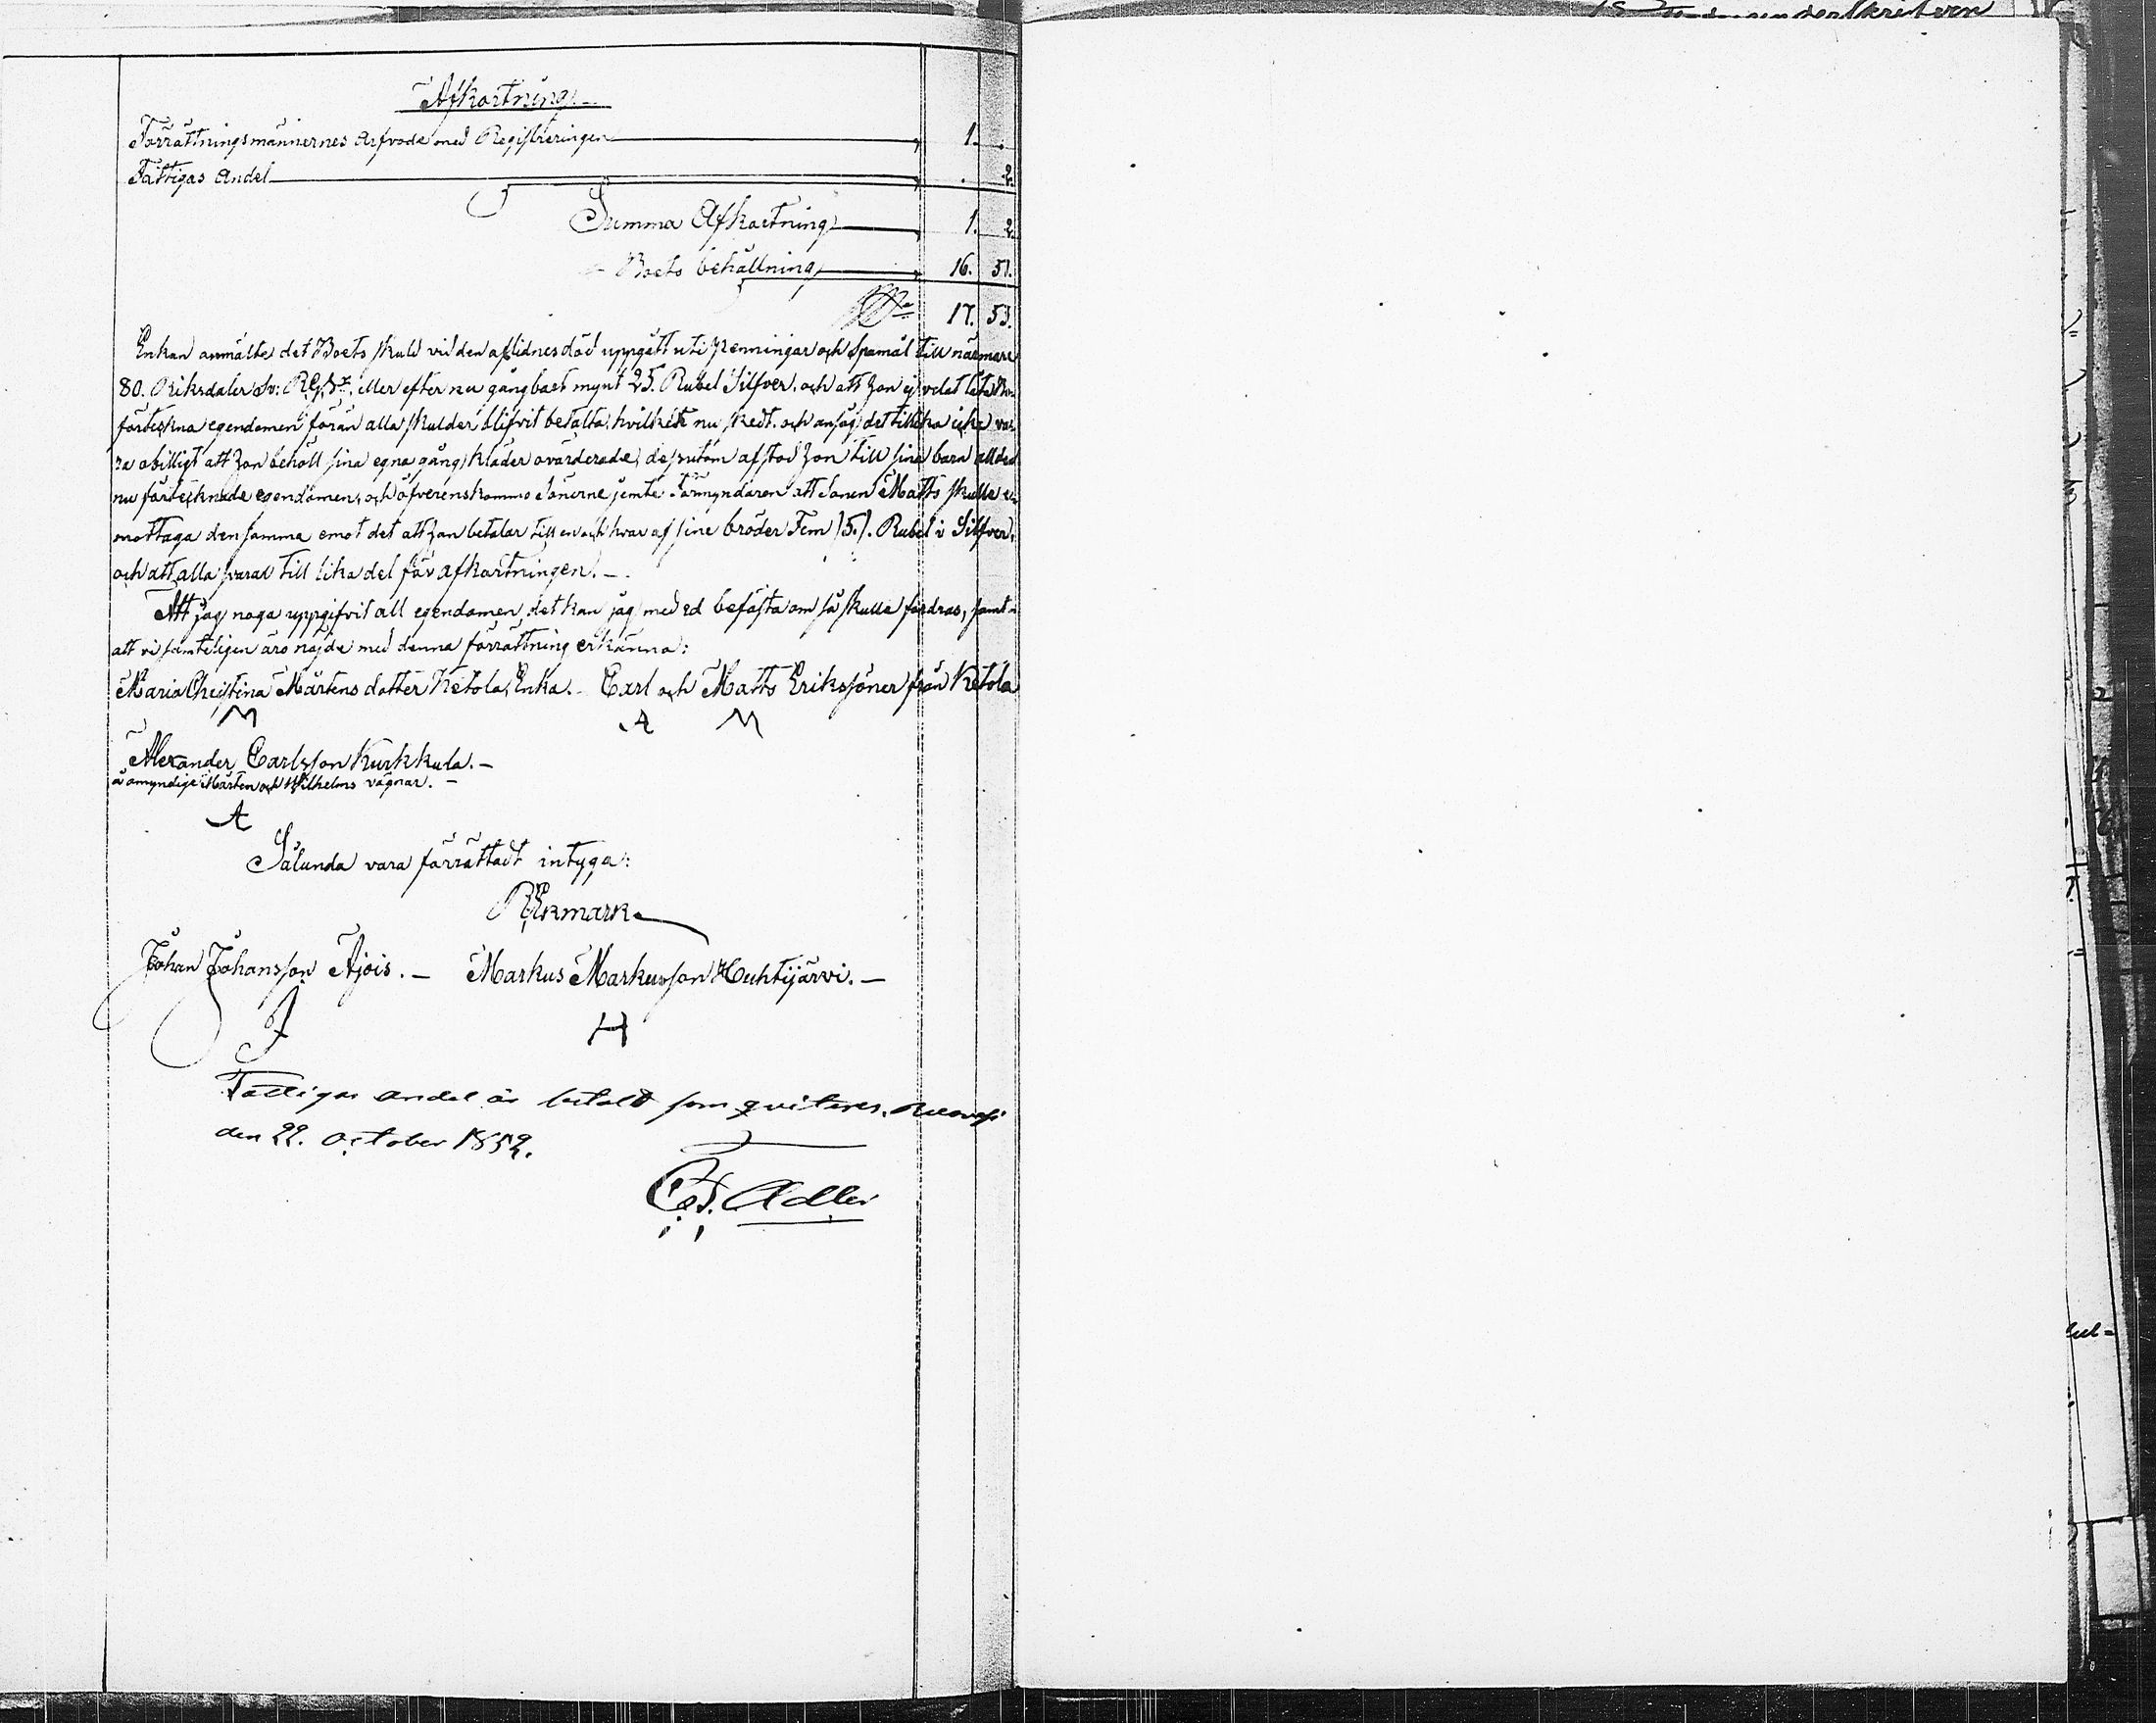 Afkortning
Förrättningsmännernes Arfvode med Registreringen 1. .
Fattigas Andel . 2.
Summa Afkortning 1. 2.
Boets behållning 16. 51.
17. 53.
Enkan anmälte det Boets skuld vid den aflidnes död uppgått uti penningar och Spanmål till närmare
80. Riksdaler Sv: eller efter nu gångbart mynt 25. Rubel Silfver, och att hon ej velat låta
förteckna egendomen förän alla skulder blifvit betalta, hvilket nu skedt, och ansåg det tillika icke va-
ra obilligt att hon behöll sina egna gångkläder ovärderade, desutom afstod hon till sina barn all den
nu förtecknade egendomen, och öfverenskommo Sönerne jemte Förmyndaren att Sonen Matts skulle e-
mottaga densamma emot det att han betalar till en och hvar af sine bröder Fem /5./. Rubel i Silfver,
och att alla svara till lika del för afkortningen. –
Att jag noga uppgifvit all egendomen, det kan jag med ed befästa om så skulle fordras, samt
att vi samteligen äro nöjde med denna förrättning erkänna:
Maria Christina Mårtens dotter Ketola, Enka. – Carl och Matts Eriksöner från Ketola
M A M
Alexander Carlsson Kurkkula. –
å omyndige Mårten och Wilhelms vägnar. –
A
Sålunda vara förrättadt intyga:
REkmark
Johan Johansson Ajois. – Markus Markusson Huhtijärvi. –
J H
Fattigas andel är betald som qviteras.
den 22. October 1852.
Ad. Adler